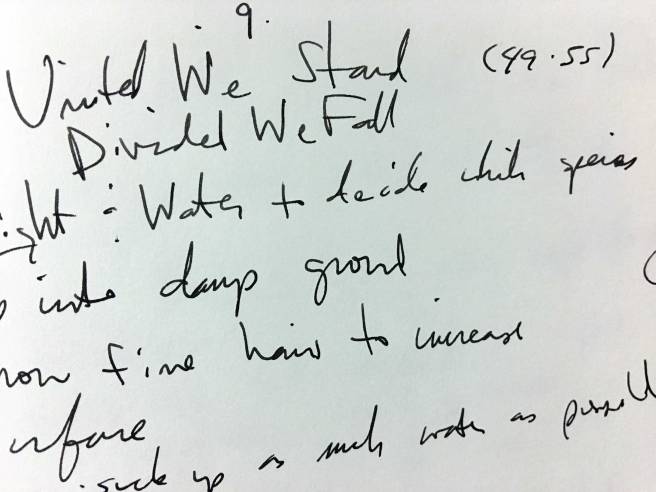 9.
United We Stand (49.55)
Divided We Fall
ight : Water to decide which species
into damp ground
row fine hair to increase
urface
. suck up as much water as possibl